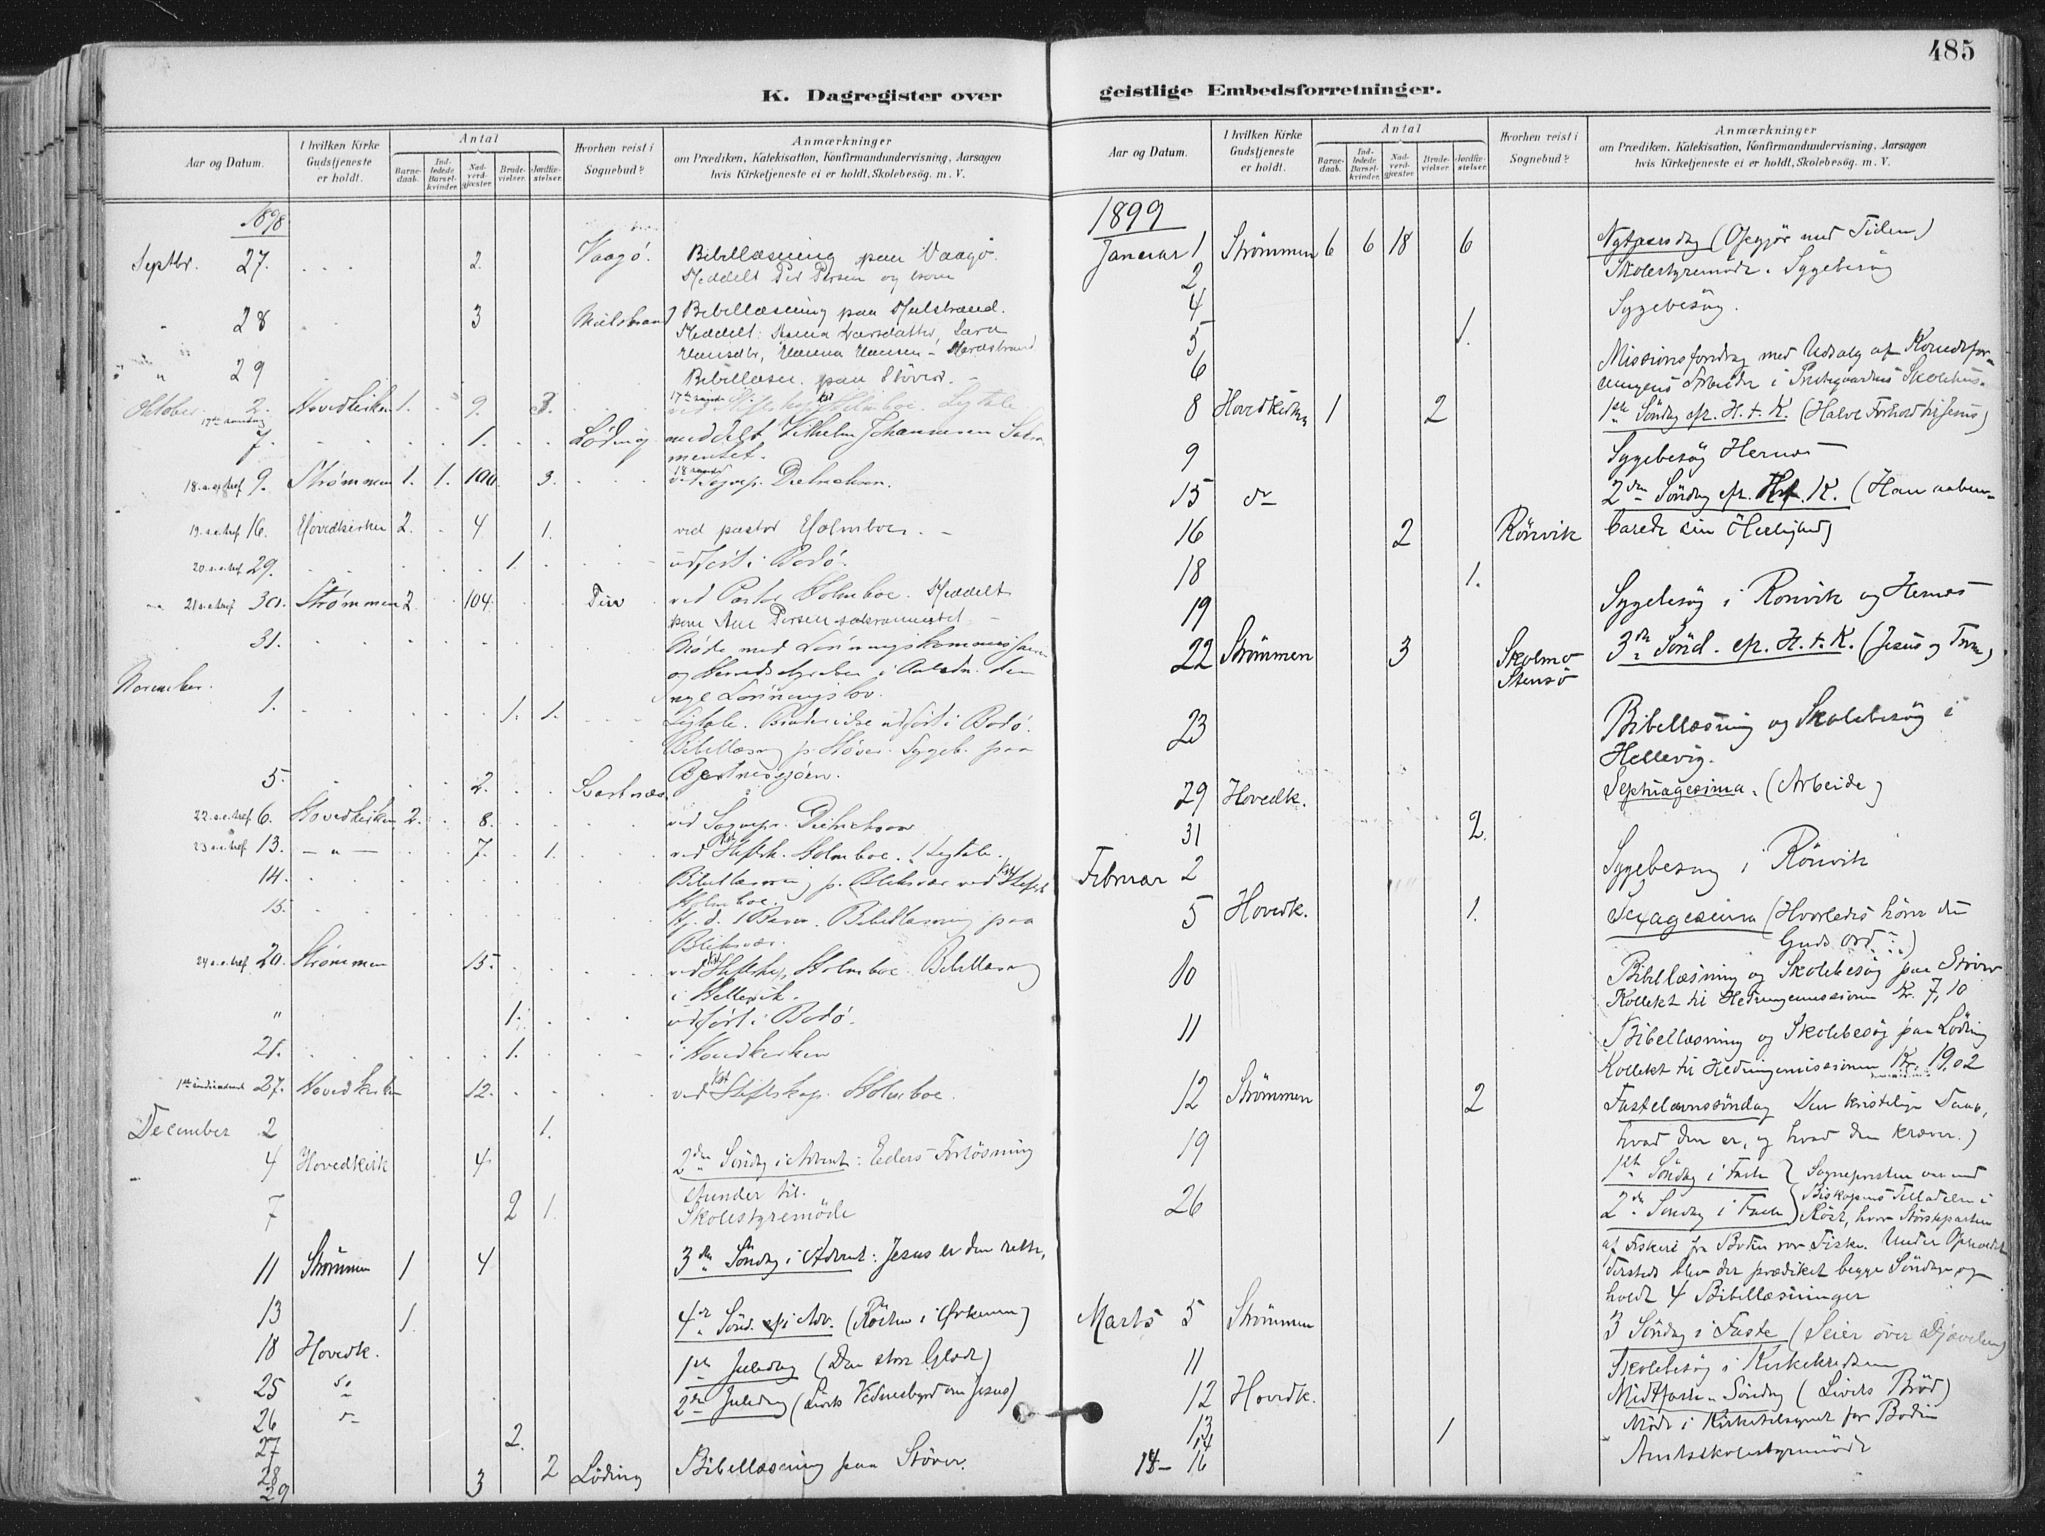 485
K. Dagregister over
geistlige Embedsforretninger.
Aar og Datum.
I hvilken Kirke Gudstjeneste er holdt.
Antal
Barne-daab.
Ind-ledede Barsel-kvinder.
Nad-verd-gjæster.
Brude-vielser.
Jordfæ-stelser.
Hvorhen reist i Sognebud?
Anmærkninger
om Prædiken, Katekisation, Konfirmandundervisning, Aarsagen
hvis Kirketjeneste ei er holdt, Skolebesög. m. V.
1898
Septbr. 27. 2. Vaagö. Bibellæsning paa Vaagö.
Meddelt Per Persen og kone
28 3 Bibellæsning paa
Meddelt: Anna Larsdatter, Sara
Hanna Hansen
29 Bibellæsn. paa Støver.
Oktober 2. Hovedkirken 1. 9. 3. 17de sønd. ved Stiftskap. Holmboe. Ligtale
17de søndag
7. 1. Løding meddelt Vilhelm Johannesen Sakra-
mentet.
18.s.e.tref 9. Strømmen 1. 1. 100. 3. ved Sognepr. Dietrichson.
19.s.e.tref 16. Hovedkirken 2. 4 1. ved pastor Holmboe.
20.s.e.tref 29. 1. udført i Bodö.
21.s.e.tref 30. Strømmen 2. 104. ved Pastor Holmboe. Meddelt
kone Ane Persen sakramentet
31. Møde med Lønningskommissionen
og Herredsstyrelsen i Anledn. den
nye Lønningslov.
November.
1. 1. 1. Ligtale. Brudevielse udført i Bodö.
Bibellæsn. p. Støver. Sygeb. paa
5. 2. Svartnæs.
22.s.e.tref 6. Hovedkirken 2. 8. ved Sognepr. Dietrichson
23.s.e.tref 13. — " — 7. 1. ved Kst Stiftsk. Holmboe. 1 Ligtale.
14. Bibellæsning p. Bliksvær ved Kst Stiftsk.
Holmboe.
15. Hj. d. 1 Barn. Bibellæsning paa
Bliksvær.
24.s.e.tref 20. Strømmen 15. ved Kst Stiftskap. Holmboe. Bibellæsning
i Hellevik.
" 1. udført i Bodö.
21. 1. i Hovedkirken
1ste søndi advent 27. Hovedkirken 12. ved Kst Stiftskap. Holmboe.
December 2 1.
4 Hovedkirk 4 2den Søndag i Advent: Eders Forlösning
stunder til.
7 2 1. Skolestyremöde
11 Strömmen 1 4 3die Söndag i Advent: Jesus er den rette.
13 1.
18 Hovedk. 4de Sönd. i Adv. (Rösten i Ørkenen)
25 do 1ste Juledag (Den store Glæde)
26 do 2den Juledag (Livets Vidnesbyrd om Jesus)
27 2.
28 2
29 3 Löding Bibellæsning paa Støver.
Aar og Datum.
I hvilken Kirke Gudstjeneste er holdt.
Antal
Barne-daab.
Ind-ledede Barsel-kvinder.
Nad-verd-gjæster.
Brude-vielser.
Jordfæ-stelser.
Hvorhen reist i Sognebud?
Anmærkninger
om Prædiken, Katekisation, Konfirmandundervisning, Aarsagen
hvis Kirketjeneste ei er holdt, Skolebesög. m. V.
1899
Januar 1 Strömmen 6 6 18 6 Nytaarsdag (Opgjör med Tiden)
2 Skolestyremöde. Sygebesög
4 Sygebesög.
5 1.
6 Missionsforedrag med Udsalg af Kvindefor-
eningens Arbeide i Præstegaardens Skolehus.
8 Hovedkirken 1 2 1ste Söndag efr. H. t. K. (Halve Forhold til Jesus)
9 Sygebesög Hernes
15 do 2den Söndag efr. H. t. K. (Han aaben-
barede sin Herlighed)
16 2 Rönvik
18 1.
19 Sygebesög i Rönvik og Hernes
22 Strömmen 3 Skolmo
Stensö
3die Sönd. efr. H. t. K. (Jesus og Troen)
23 Bibellæsning og Skolebesög i
Hellevig.
29 Hovedk. Septuagesima. (Arbeide)
31 2.
Februar 2 Sygebesög i Rönvik
5 Hovedk. 1. Sexagesima (Hvorledes hörer du
Guds ord?)
10 Bibellæsning og Skolebesög paa Støver
Kollekt til Hedningemissionen Kr. 7,10
11 Bibellæsning og Skolebesög paa Löding
Kollekt til Hedningemissionen Kr. 19.02
12 Strömmen 2 Fastelavnssöndag Den kristelige Daab,
hvad den er, og hvad den kræver.)
19 1ste Söndag i Faste } Sognepresten var med
26 2den Söndag i Faste } Biskopens Tilladelse i
Röst, hvor Störsteparten
af Fiskere fra Bodin var Fiske. Under Opholdet
dersteds blev der prædiket begge Söndage og
holdt 4 Bibellæsninger
Marts 5 Strömmen 3 Söndag i Faste (Seier over Djævelen)
11 Skolebesög i Kirkekredsen
12 Hovedk. Midtfaste Söndag (Livets Bröd)
13 Möde i Kirketilsynet for Bodin
14 1
14 — 16 Amtsskolestyremöde